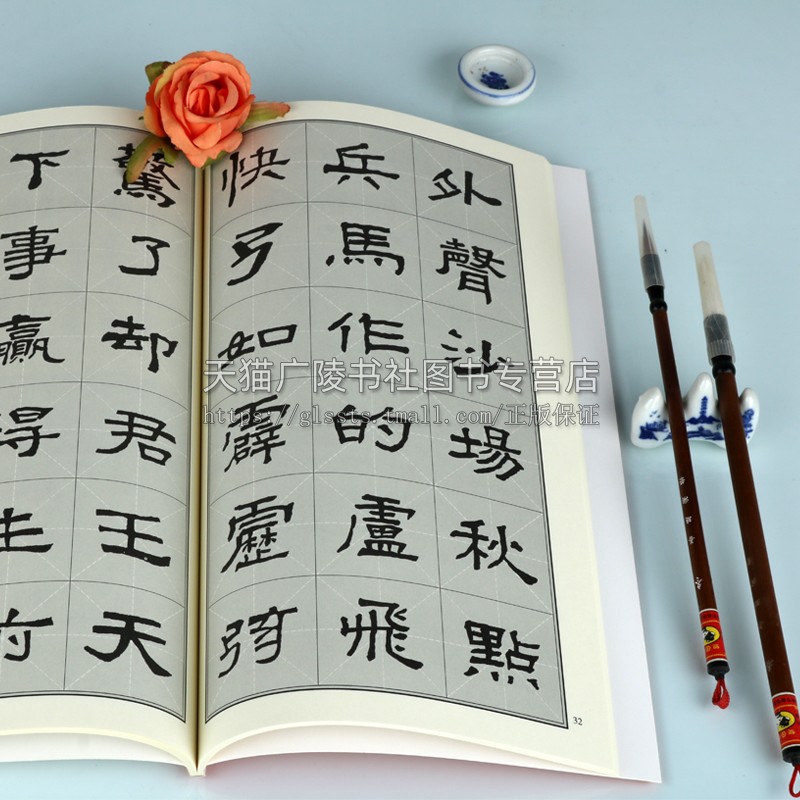 外聲沙場秋點
兵馬作的盧飛
快弓如霹靂弦
驚了却君王天
下事贏得生
32
天猫广陵书社图书专营店
https://glssts.tmall.com/正版保证